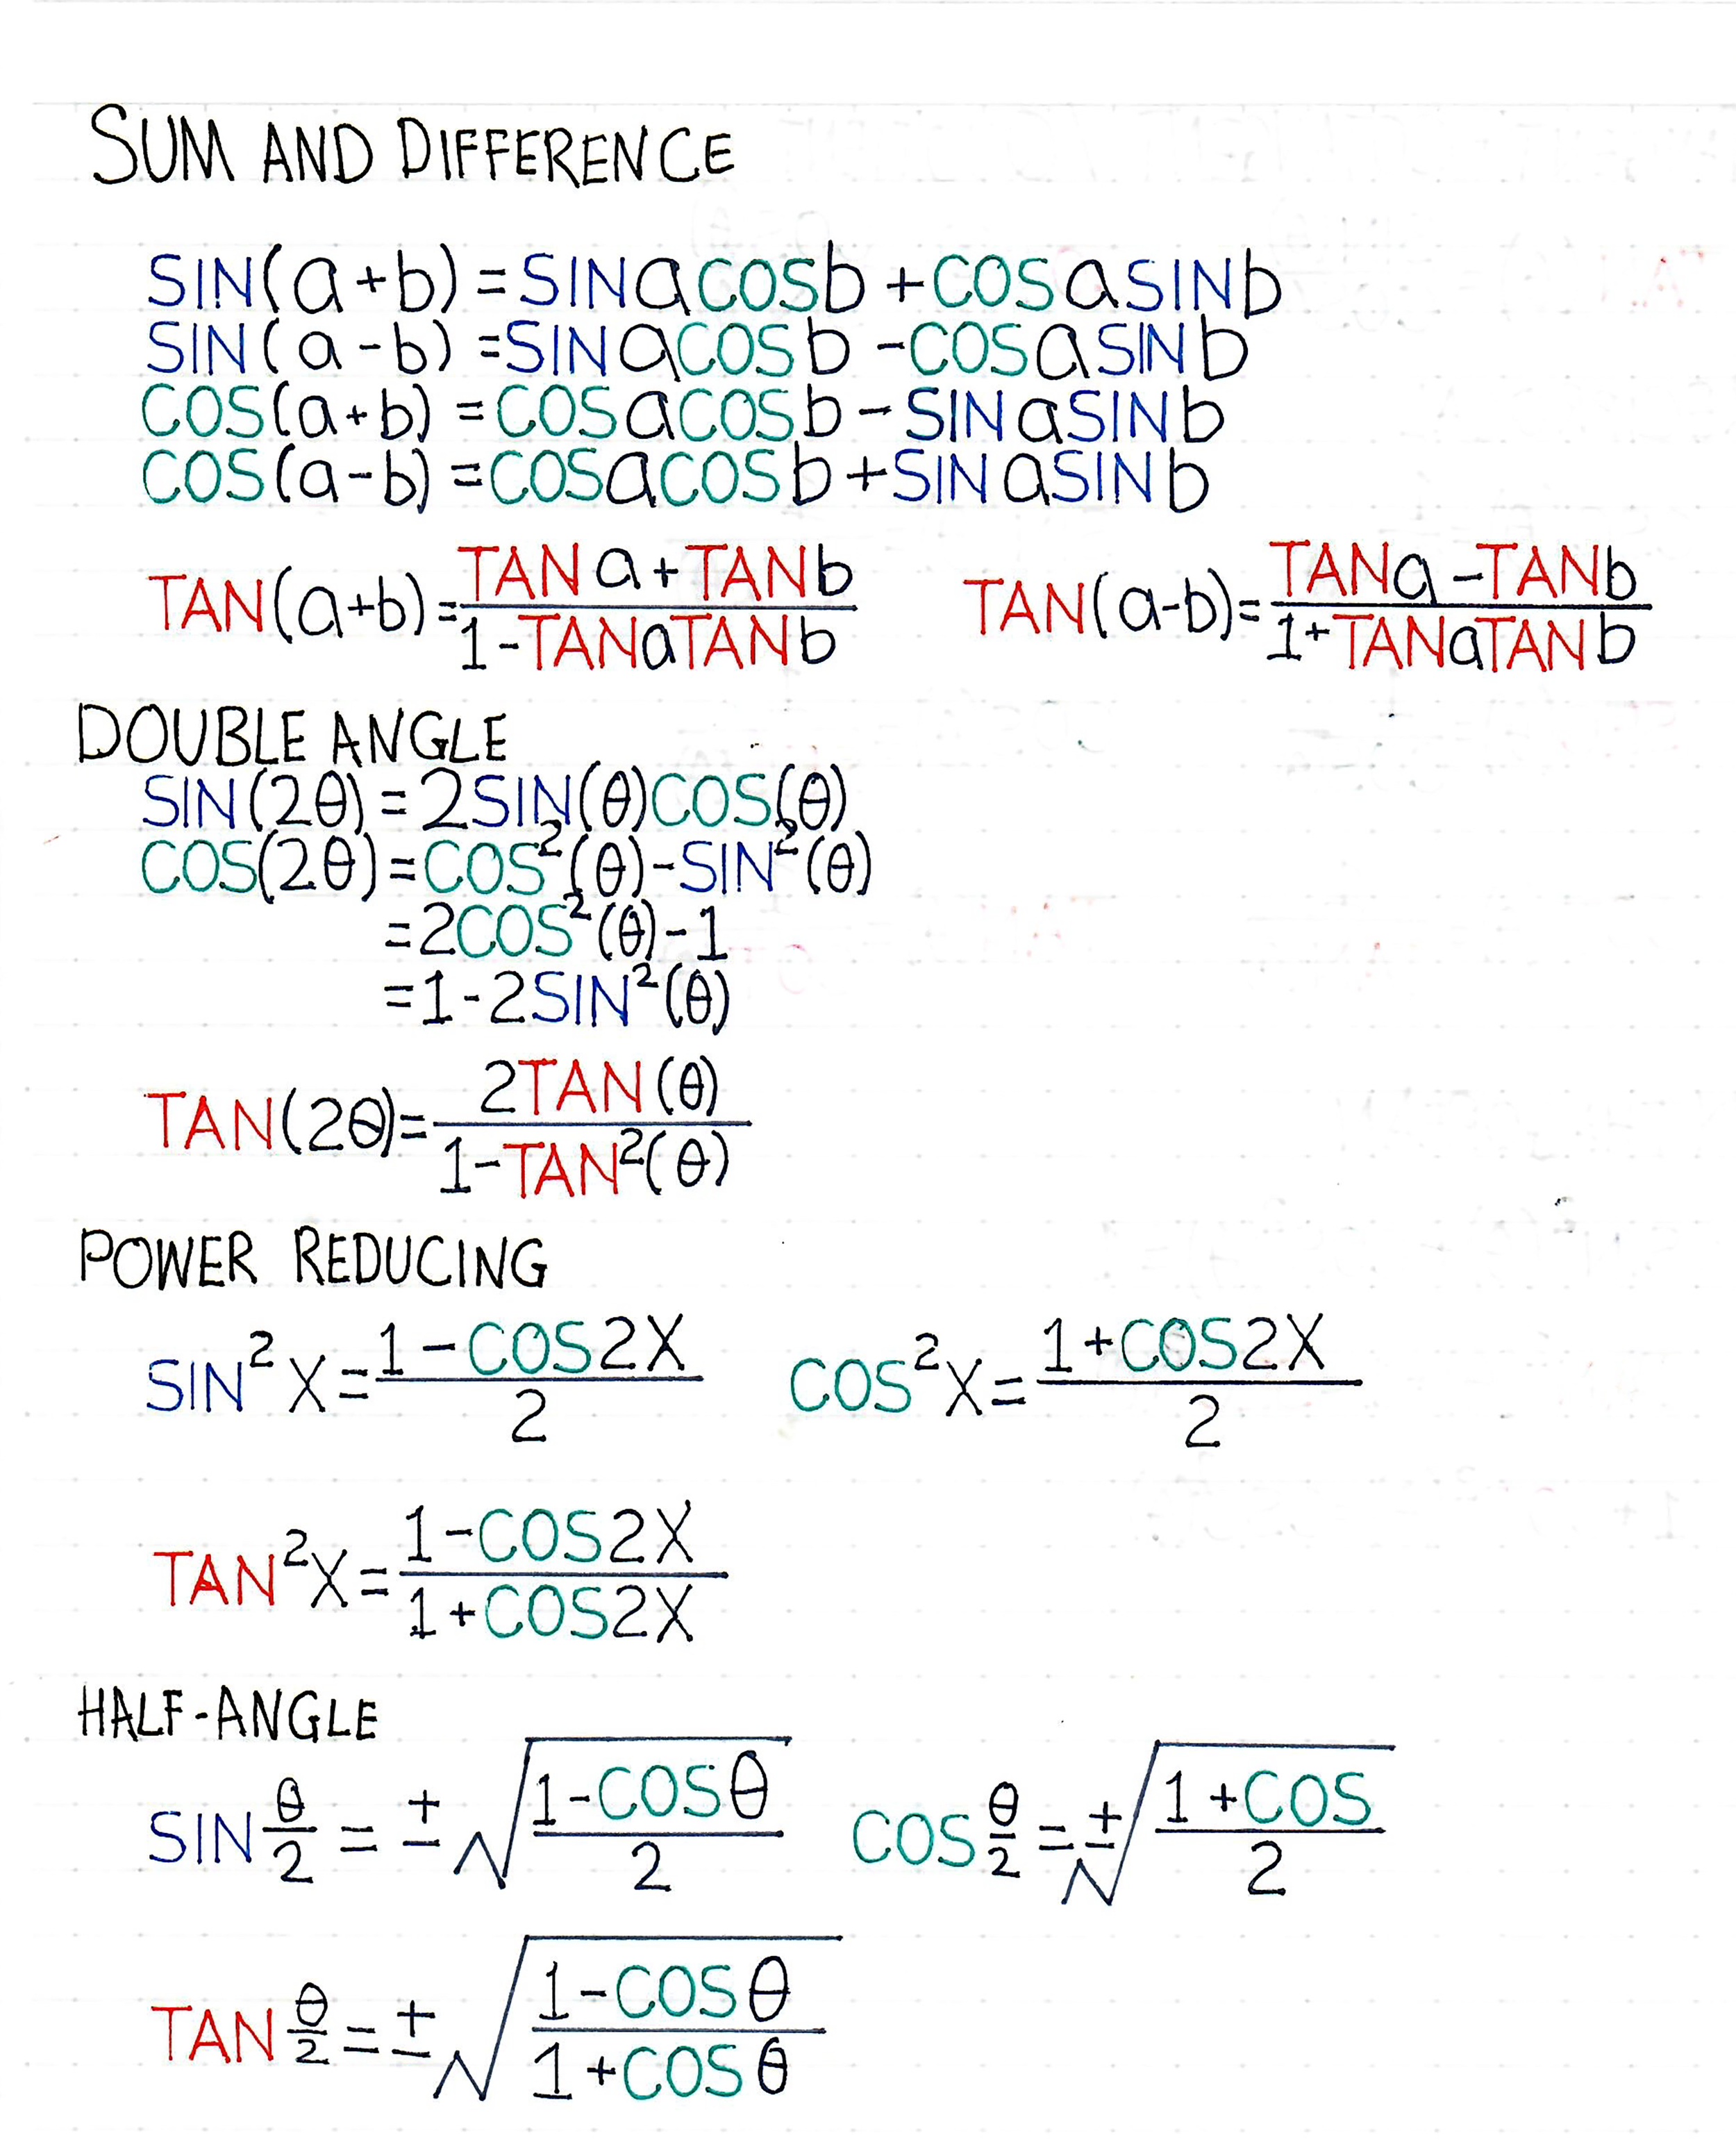 SUM AND DIFFERENCE
SIN(a+b) = SINaCOSb + COSaSINb
SIN(a-b) = SINaCOSb - COSaSINb
COS(a+b) = COSaCOSb - SINaSINb
COS(a-b) = COSaCOSb + SINaSINb
TAN(a+b) = (TANa + TANb)/(1 - TANaTANb) TAN(a-b) = (TANa - TANb)/(1 + TANaTANb)
DOUBLE ANGLE
SIN(2θ) = 2SIN(θ)COS(θ)
COS(2θ) = COS²(θ) - SIN²(θ)
= 2COS²(θ) - 1
= 1 - 2SIN²(θ)
TAN(2θ) = 2TAN(θ)/(1 - TAN²(θ))
POWER REDUCING
SIN²X = (1 - COS2X)/2 COS²X = (1 + COS2X)/2
TAN²X = (1 - COS2X)/(1 + COS2X)
HALF-ANGLE
SIN θ/2 = ± √((1 - COSθ)/2) COS θ/2 = ± √((1 + COS)/2)
TAN θ/2 = ± √((1 - COSθ)/(1 + COSθ))